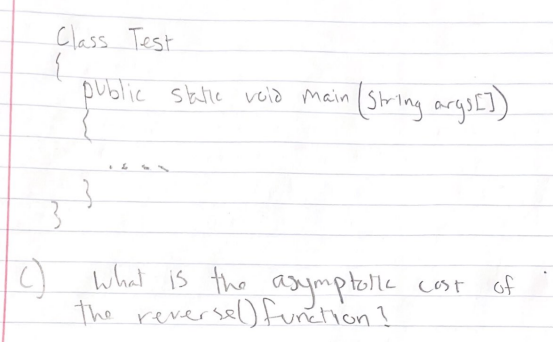 Class Test
{
public static void main (String args[])
{
.....
}
}
C) What is the asymptotic cost of
the reverse() function?